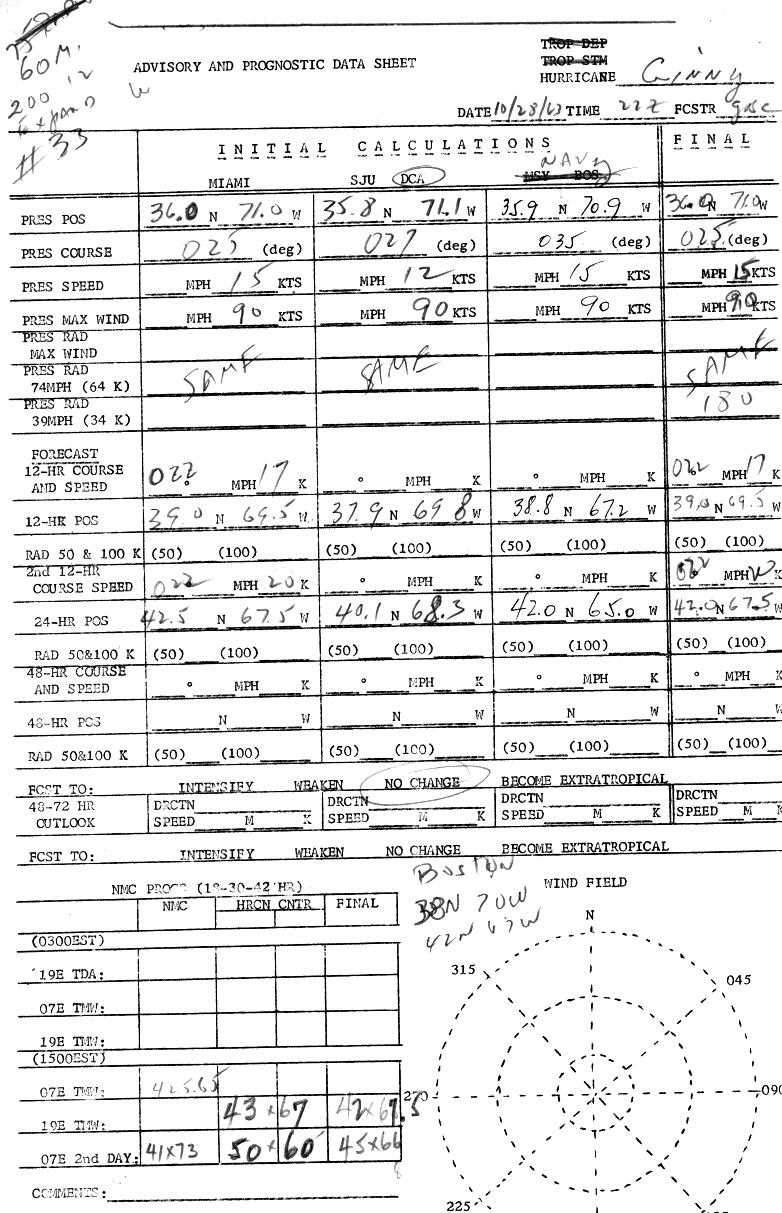 60 M.
200
# 33
TROP DEP
TROP STM
ADVISORY AND PROGNOSTIC DATA SHEET
HURRICANE Ginny
DATE 10/28/63 TIME 22Z FCSTR
INITIAL CALCULATIONS FINAL
NAVY
MIAMI SJU DCA MSY BOS
PRES POS 36.0 N 71.0 W 35.8 N 71.1 W 35.9 N 70.9 W 36.0 N 71.0 W
PRES COURSE 025 (deg) 027 (deg) 035 (deg) 025 (deg)
PRES SPEED MPH 15 KTS MPH 12 KTS MPH 15 KTS MPH 15 KTS
PRES MAX WIND MPH 90 KTS MPH 90 KTS MPH 90 KTS MPH 90 KTS
PRES RAD
MAX WIND
PRES RAD
74MPH (64 K) SAME SAME SAME
PRES RAD 180
39MPH (34 K)
FORECAST
12-HR COURSE
AND SPEED 022° MPH 17 K ° MPH K ° MPH K 022 MPH 17 K
12-HR POS 39.0 N 69.5 W 37.9 N 69.8 W 38.8 N 67.2 W 39.0 N 69.5 W
RAD 50 & 100 K (50) (100) (50) (100) (50) (100) (50) (100)
2nd 12-HR
COURSE SPEED 022 MPH 20 K ° MPH K ° MPH K 022 MPH K
24-HR POS 42.5 N 67.5 W 40.1 N 68.3 W 42.0 N 65.0 W 42.0 N 67.5 W
RAD 50&100 K (50) (100) (50) (100) (50) (100) (50) (100)
48-HR COURSE
AND SPEED ° MPH K ° MPH K ° MPH K ° MPH K
48-HR POS N W N W N W N W
RAD 50&100 K (50) (100) (50) (100) (50) (100) (50) (100)
FCST TO: INTENSIFY WEAKEN NO CHANGE BECOME EXTRATROPICAL
48-72 HR DRCTN DRCTN DRCTN DRCTN
OUTLOOK SPEED M K SPEED M K SPEED M K SPEED M K
FCST TO: INTENSIFY WEAKEN NO CHANGE BECOME EXTRATROPICAL
Boston
38N 70W
42N 67W
NMC PROGS (18-30-42 HR)
NMC HRCN CNTR FINAL
(0300EST)
19E TDA:
07E TMW:
19E TMW:
(1500EST)
07E TMW: 42.5 65
19E TMW: 43 x 67 42 x 67.5
07E 2nd DAY: 41x73 50 x 60 45x66
8
COMMENTS:
WIND FIELD
N
315 045
270 090
225